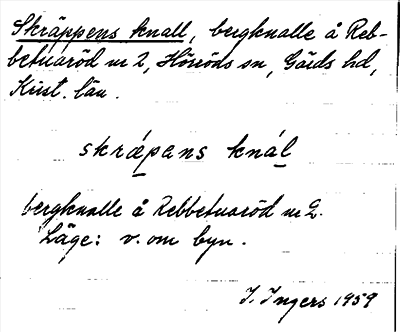 Skräppens knall, bergknalle å Reb-
betuaröd nr 2, Hörröds sn, Gärds hd,
Krist. län.
skræpans knál
bergknalle å Rebbetuaröd nr 2.
Läge: v. om byn.
I. Ingers 1959